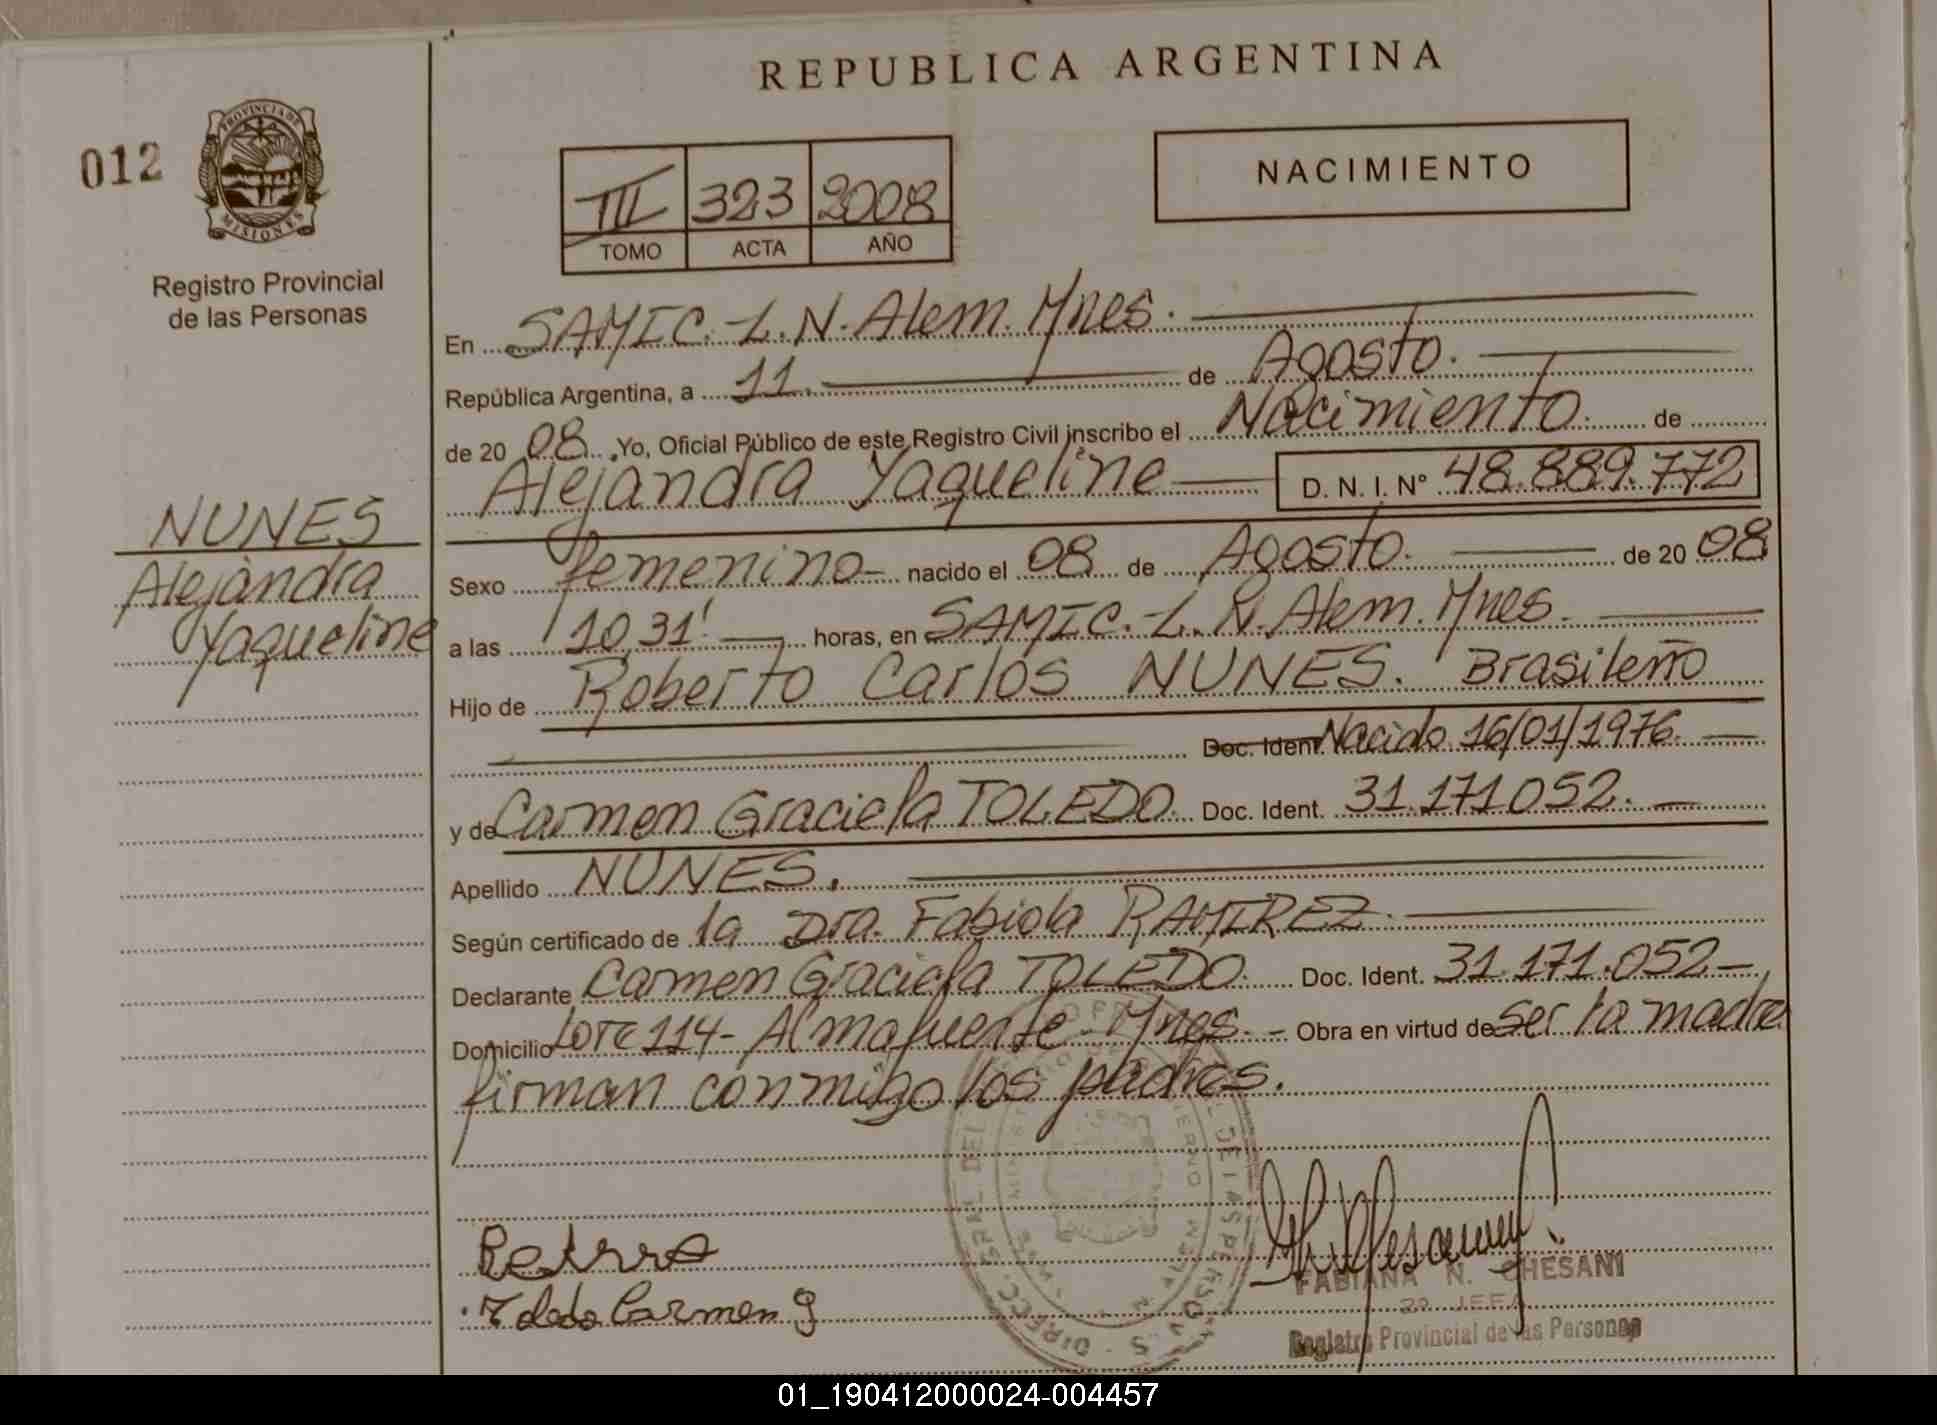 REPUBLICA ARGENTINA
012
PROVINCIA DE
MISIONES
Registro Provincial
de las Personas
III 323 2008
TOMO ACTA AÑO
NACIMIENTO
En SAMIC.-L.N.Alem.Mnes.
República Argentina, a 11. de Agosto.
de 20 08. Yo, Oficial Público de este Registro Civil inscribo el Nacimiento. de
Alejandra Yaqueline D. N. I. Nº 48.889.772
NUNES
Alejandra
Yaqueline
Sexo femenino nacido el 08 de Agosto. de 20 08
a las 10,31' horas, en SAMIC.-L.N.Alem.Mnes.
Hijo de Roberto Carlos NUNES. Brasileño
Doc. Ident. Nacido 16/01/1976.
y de Carmen Graciela TOLEDO. Doc. Ident. 31.171.052.
Apellido NUNES.
Según certificado de la Dra. Fabiola RAMIREZ.
Declarante Carmen Graciela TOLEDO. Doc. Ident. 31.171.052-
Domicilio Lote 114- Almafuerte-Mnes.- Obra en virtud de ser la madre
firman conmigo los padres.
Toledo Carmen g
FABIANA N. CHESANI
2º JEFA
Registro Provincial de las Personas
01_190412000024-004457